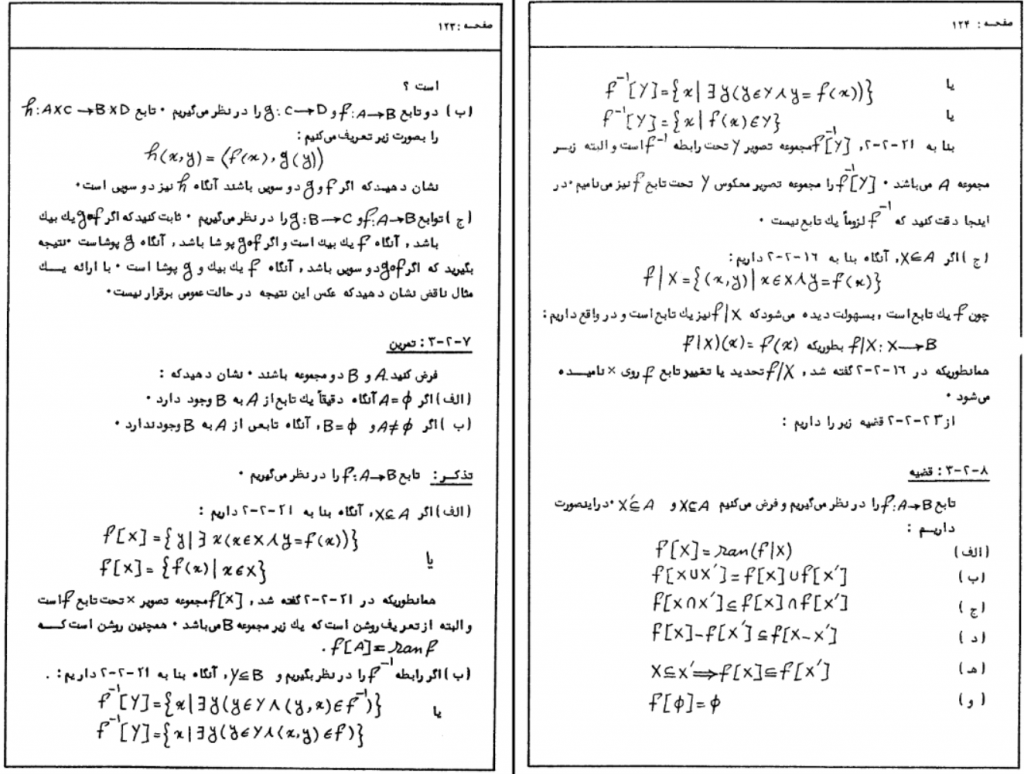 صفحـه : ۱۲۳
است ؟
(ب) دو تابع f:A→B و g:C→D را در نظر می‌گیریم ۰ تابع h:A×C→B×D
را بصورت زیر تعریف می‌کنیم :
h(x,y)=(f(x),g(y))
نشان دهید که اگر f و g دو سویی باشند آنگاه h نیز دو سویی است ۰
(ج) توابع f:A→B و g:B→C را در نظر می‌گیریم ۰ ثابت کنید که اگر gof یك بیك
باشد ، آنگاه f یك بیك است و اگر gof پوشا باشد ، آنگاه g پوشاست ۰ نتیجه
بگیرید که اگر gof دو سویی باشد ، آنگاه f یك بیك و g پوشا است ۰ با ارائه یــك
مثال ناقض نشان دهید که عکس این نتیجه در حالت عمومی برقرار نیست ۰
۳-۲-۷ : تمرین
فرض کنید A و B دو مجموعه باشند ۰ نشان دهید که :
(الف) اگر A=ϕ آنگاه دقیقاً یك تابع از A به B وجود دارد ۰
(ب) اگر A≠ϕ و B=ϕ ، آنگاه تابعی از A به B وجود ندارد ۰
تذکــر : تابع f:A→B را در نظر می‌گیریم ۰
(الف) اگر X⊆A ، آنگاه بنا به ۲-۲-۲۱ داریم :
f[X]={y|∃x(x∈X∧y=f(x))}
یا
f[X]={f(x)|x∈X}
همانطوریکه در ۲-۲-۲۱ گفته شد ، f[X] مجموعه تصویر X تحت تابع f است
و البته از تعریف روشن است که یك زیر مجموعه B می‌باشد ۰ همچنین روشن است کــه
f[A]=ran f .
(ب) اگر رابطه f⁻¹ را در نظر بگیریم و Y⊆B ، آنگاه بنا به ۲-۲-۲۱ داریم :
f⁻¹[Y]={x|∃y(y∈Y∧(y,x)∈f⁻¹)}
یا
f⁻¹[Y]={x|∃y(y∈Y∧(x,y)∈f)}
صفحـه : ۱۲۴
یا f⁻¹[Y]={x|∃y(y∈Y∧y=f(x))}
یا f⁻¹[Y]={x|f(x)∈Y}
بنا به ۲-۲-۲۱ ، f⁻¹[Y] مجموعه تصویر Y تحت رابطه f⁻¹ است و البته زیــر
مجموعه A می‌باشد ۰ f⁻¹[Y] را مجموعه تصویر معکوس Y تحت تابع f نیز می‌نامیم ۰ در
اینجا دقت کنید که f⁻¹ لزوماً یك تابع نیست ۰
(ج) اگر X⊆A ، آنگاه بنا به ۲-۲-۱۶ داریم :
f|X={(x,y)|x∈X∧y=f(x)}
چون f یك تابع است ، بسهولت دیده می‌شود که f|X نیز یك تابع است و در واقع داریم :
f|X:X→B بطوریکه f|X)(x)=f(x)
همانطوریکه در ۲-۲-۱۶ گفته شد ، f|X تحدید یا تقییر تابع f روی X نامیــده
می‌شود ۰
از ۲-۲-۲۳ قضیه زیر را داریم :
۳-۲-۸ : قضیه
تابع f:A→B را در نظر می‌گیریم و فرض می‌کنیم X⊆A و X′⊆A ۰ در اینصورت
داریــم :
(الف) f[X]=ran(f|X)
(ب) f[X∪X′]=f[X]∪f[X′]
(ج) f[X∩X′]⊆f[X]∩f[X′]
(د) f[X]-f[X′]⊆f[X-X′]
(هـ) X⊆X′⟹f[X]⊆f[X′]
(و) f[ϕ]=ϕ